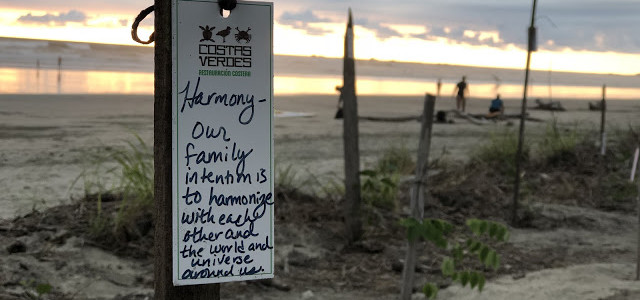 COSTAS
VERDES
RESTAURACIÓN COSTERA
Harmony-
Our
family
intention is
to harmonize
with each
other and
the world and
universe
around us.